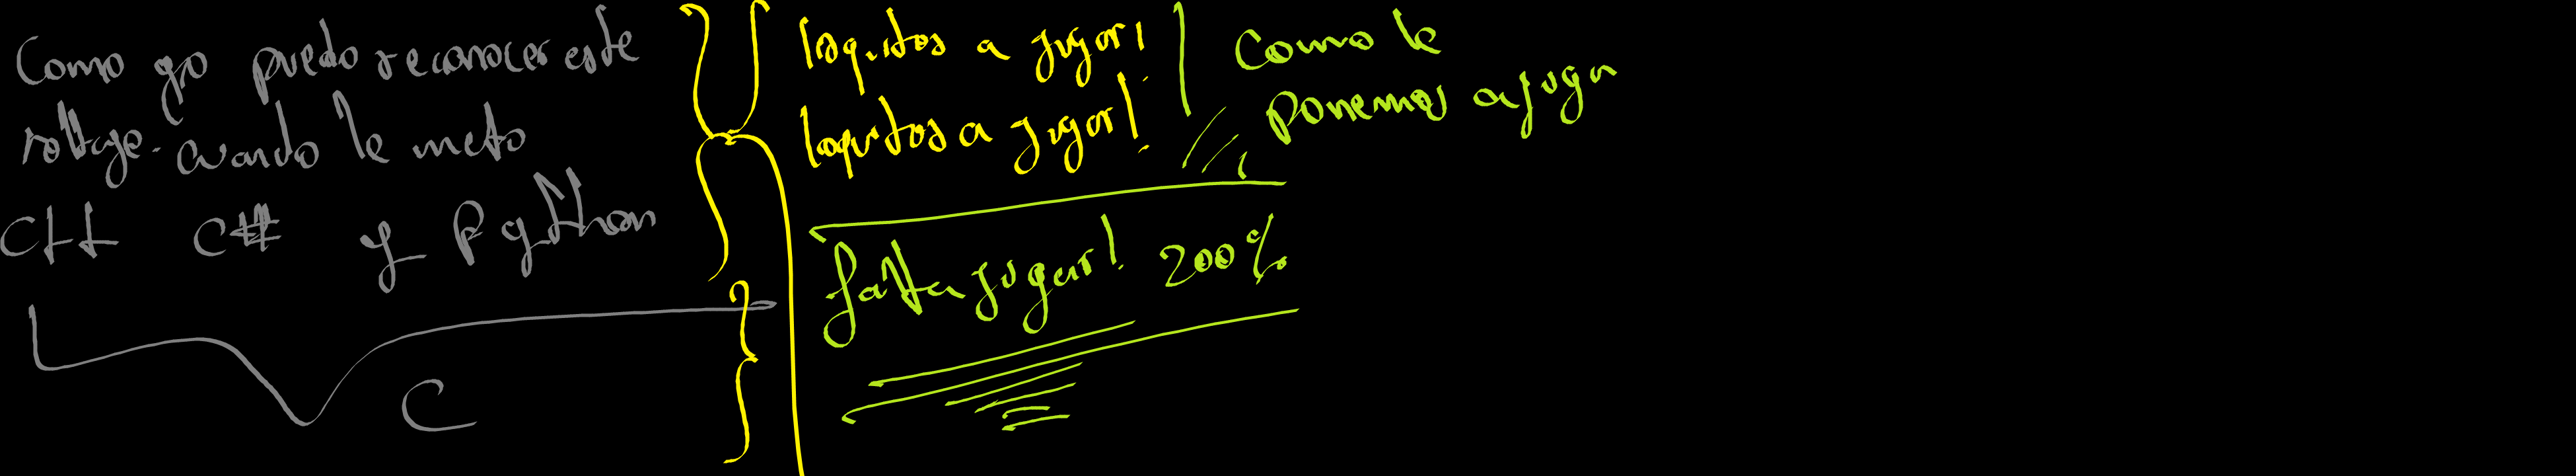 Como yo puedo reconocer este
voltaje. cuando le meto
C++ C# y Python
C
loquitos a jugar!
loquitos a jugar!
Como le
ponemos a juga
falta jugar! 200%